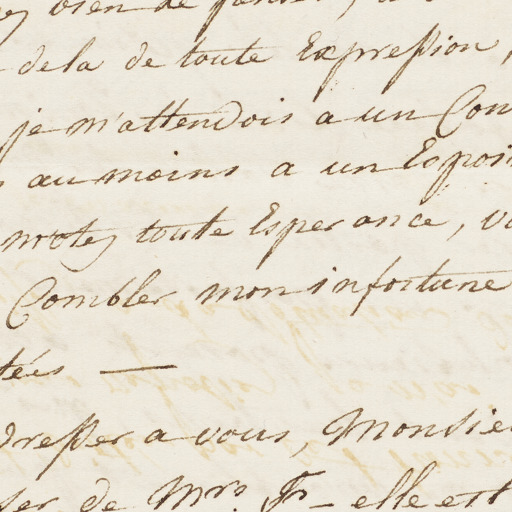 bien de
dela de toute Expression,
je m'attendois a un Con
au moins a un Espoir
m'otez toute Esperance, vo
Combler mon infortune
tées —
dresser a vous, Monsieu
ser de Mrs. Fr - elle est